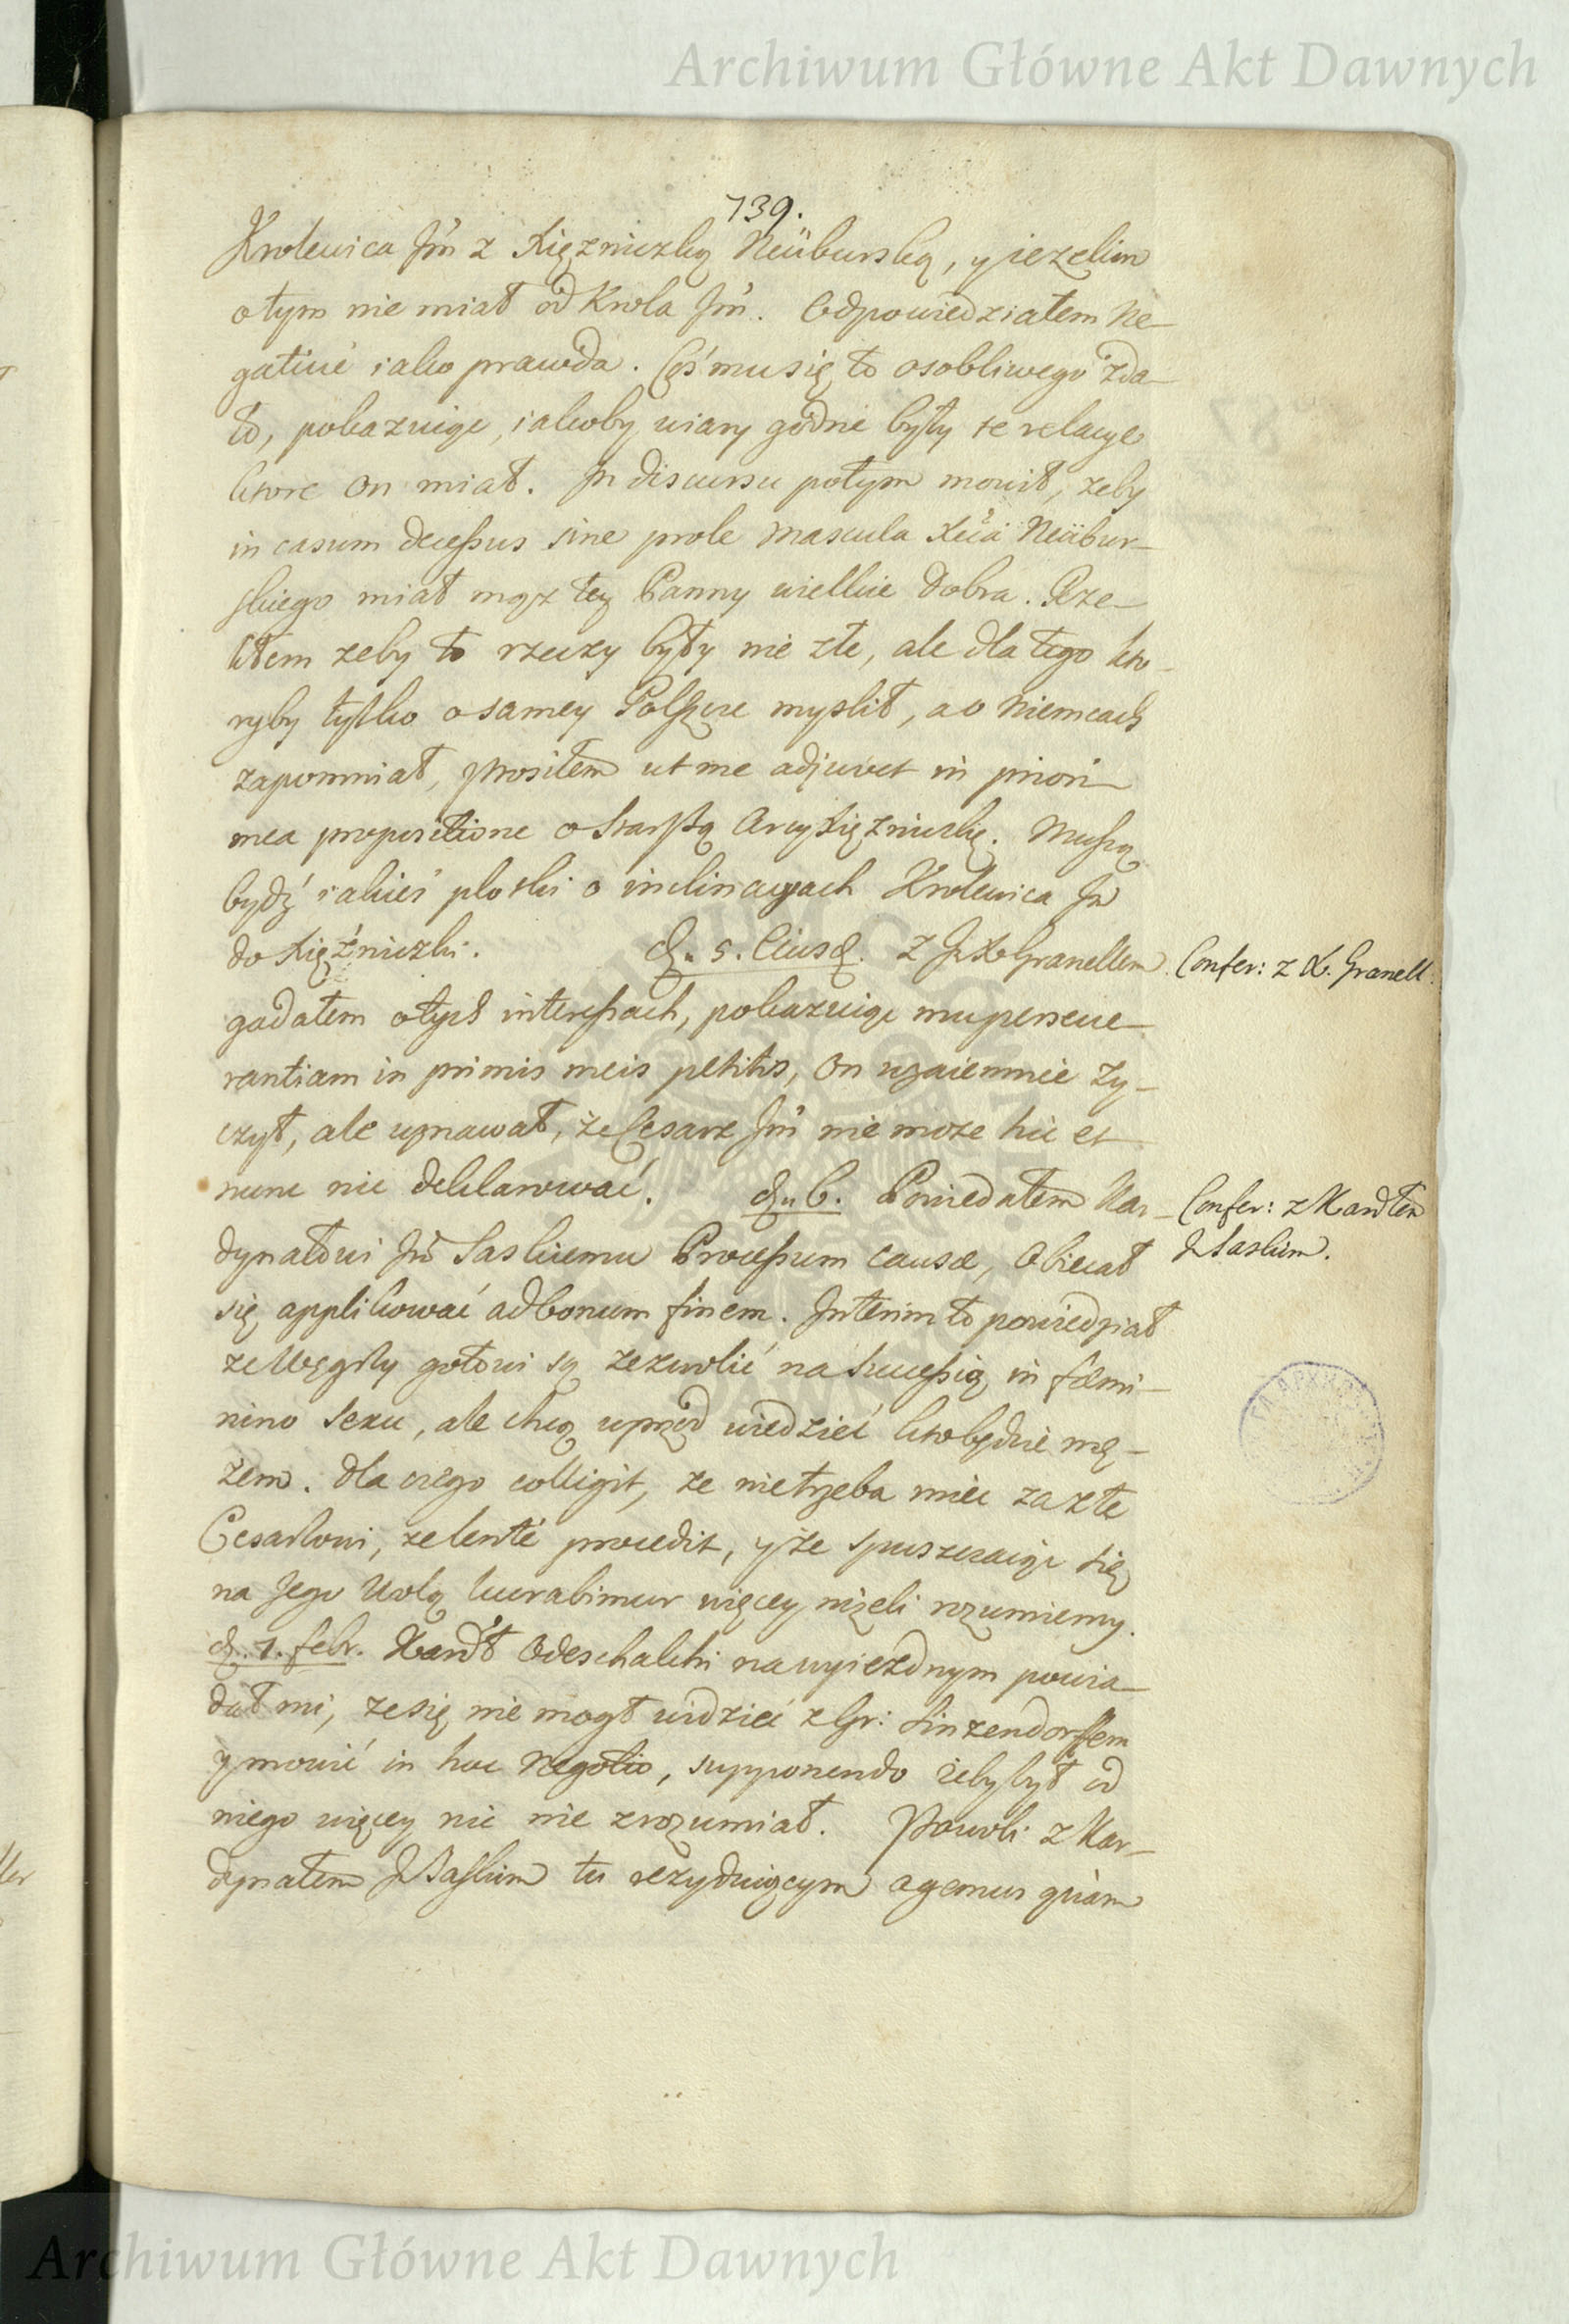 Archiwum Główne Akt Dawnych
139.
Krolewica Jm z Xięzniczką Neüburską, y iezelim
o tym nie miał od Krola Jm. Odpowiedziałem Ne-
gativé iako prawda. Coś mu się to osobliwego zda-
ło, pokazuiąc, iakoby wiary godne były te relacye
ktore on miał. In discursu potym mowił, zeby
in casum decessus sine prole mascula Xcia Neübur-
skiego miał mąz tey Panny wielkie dobra. Rze-
kłem zeby to rzeczy były nie złe, ale dla tego kto-
ryby tylko o samey Polszcze myslił, a o Niemcach
zapomniał, prosiłem ut me adjuvet in priori
mea propositione o starszą Arcyxięzniczkę. Muszą
bydź iakieś plotki o inclinacyach Krolewica Jm
do Xięźniczki. d. 5. Eiusd. z J X Granellem
Confer: z X. Granell:
gadałem o tych interessach, pokazuiąc mu perseve-
rantiam in primis meis petitis, on wzaiemnie zy-
czył, ale uznawał, że Cesarz Jm nie może hic et
nunc nic deklarować. d. 6. Powiedałem Kar-
Confer: z Kardłem
J Saskim.
dynałowi Jm Saskiemu Processum causæ, Obiecał
się applikować ad bonum finem. Interim to powiedział
ze Węgrzy gotowi są zezwolić na Successią in fæmi-
nino sexu, ale chcą wprzod wiedzieć kto będzie mę-
żem. dla czego colligit, ze nie trzeba mieć za złe
Cesarzowi, ze lenté procedit, y że spuszczaiąc się
na Jego Wolą lucrabimur więcey niżeli rozumiemy.
d. 1. febr. Kardł Odeschalchi na wyiezdnym powia-
dał mi, ze się nie mogł widzieć z Gr: Sinzendorffem
y mowić in hoc Negotio, supponendo żeby był od
niego więcey nic nie zrozumiał. Powoli z Kar-
dynałem J Saskim tu rezyduiącym agemus quam
Archiwum Główne Akt Dawnych